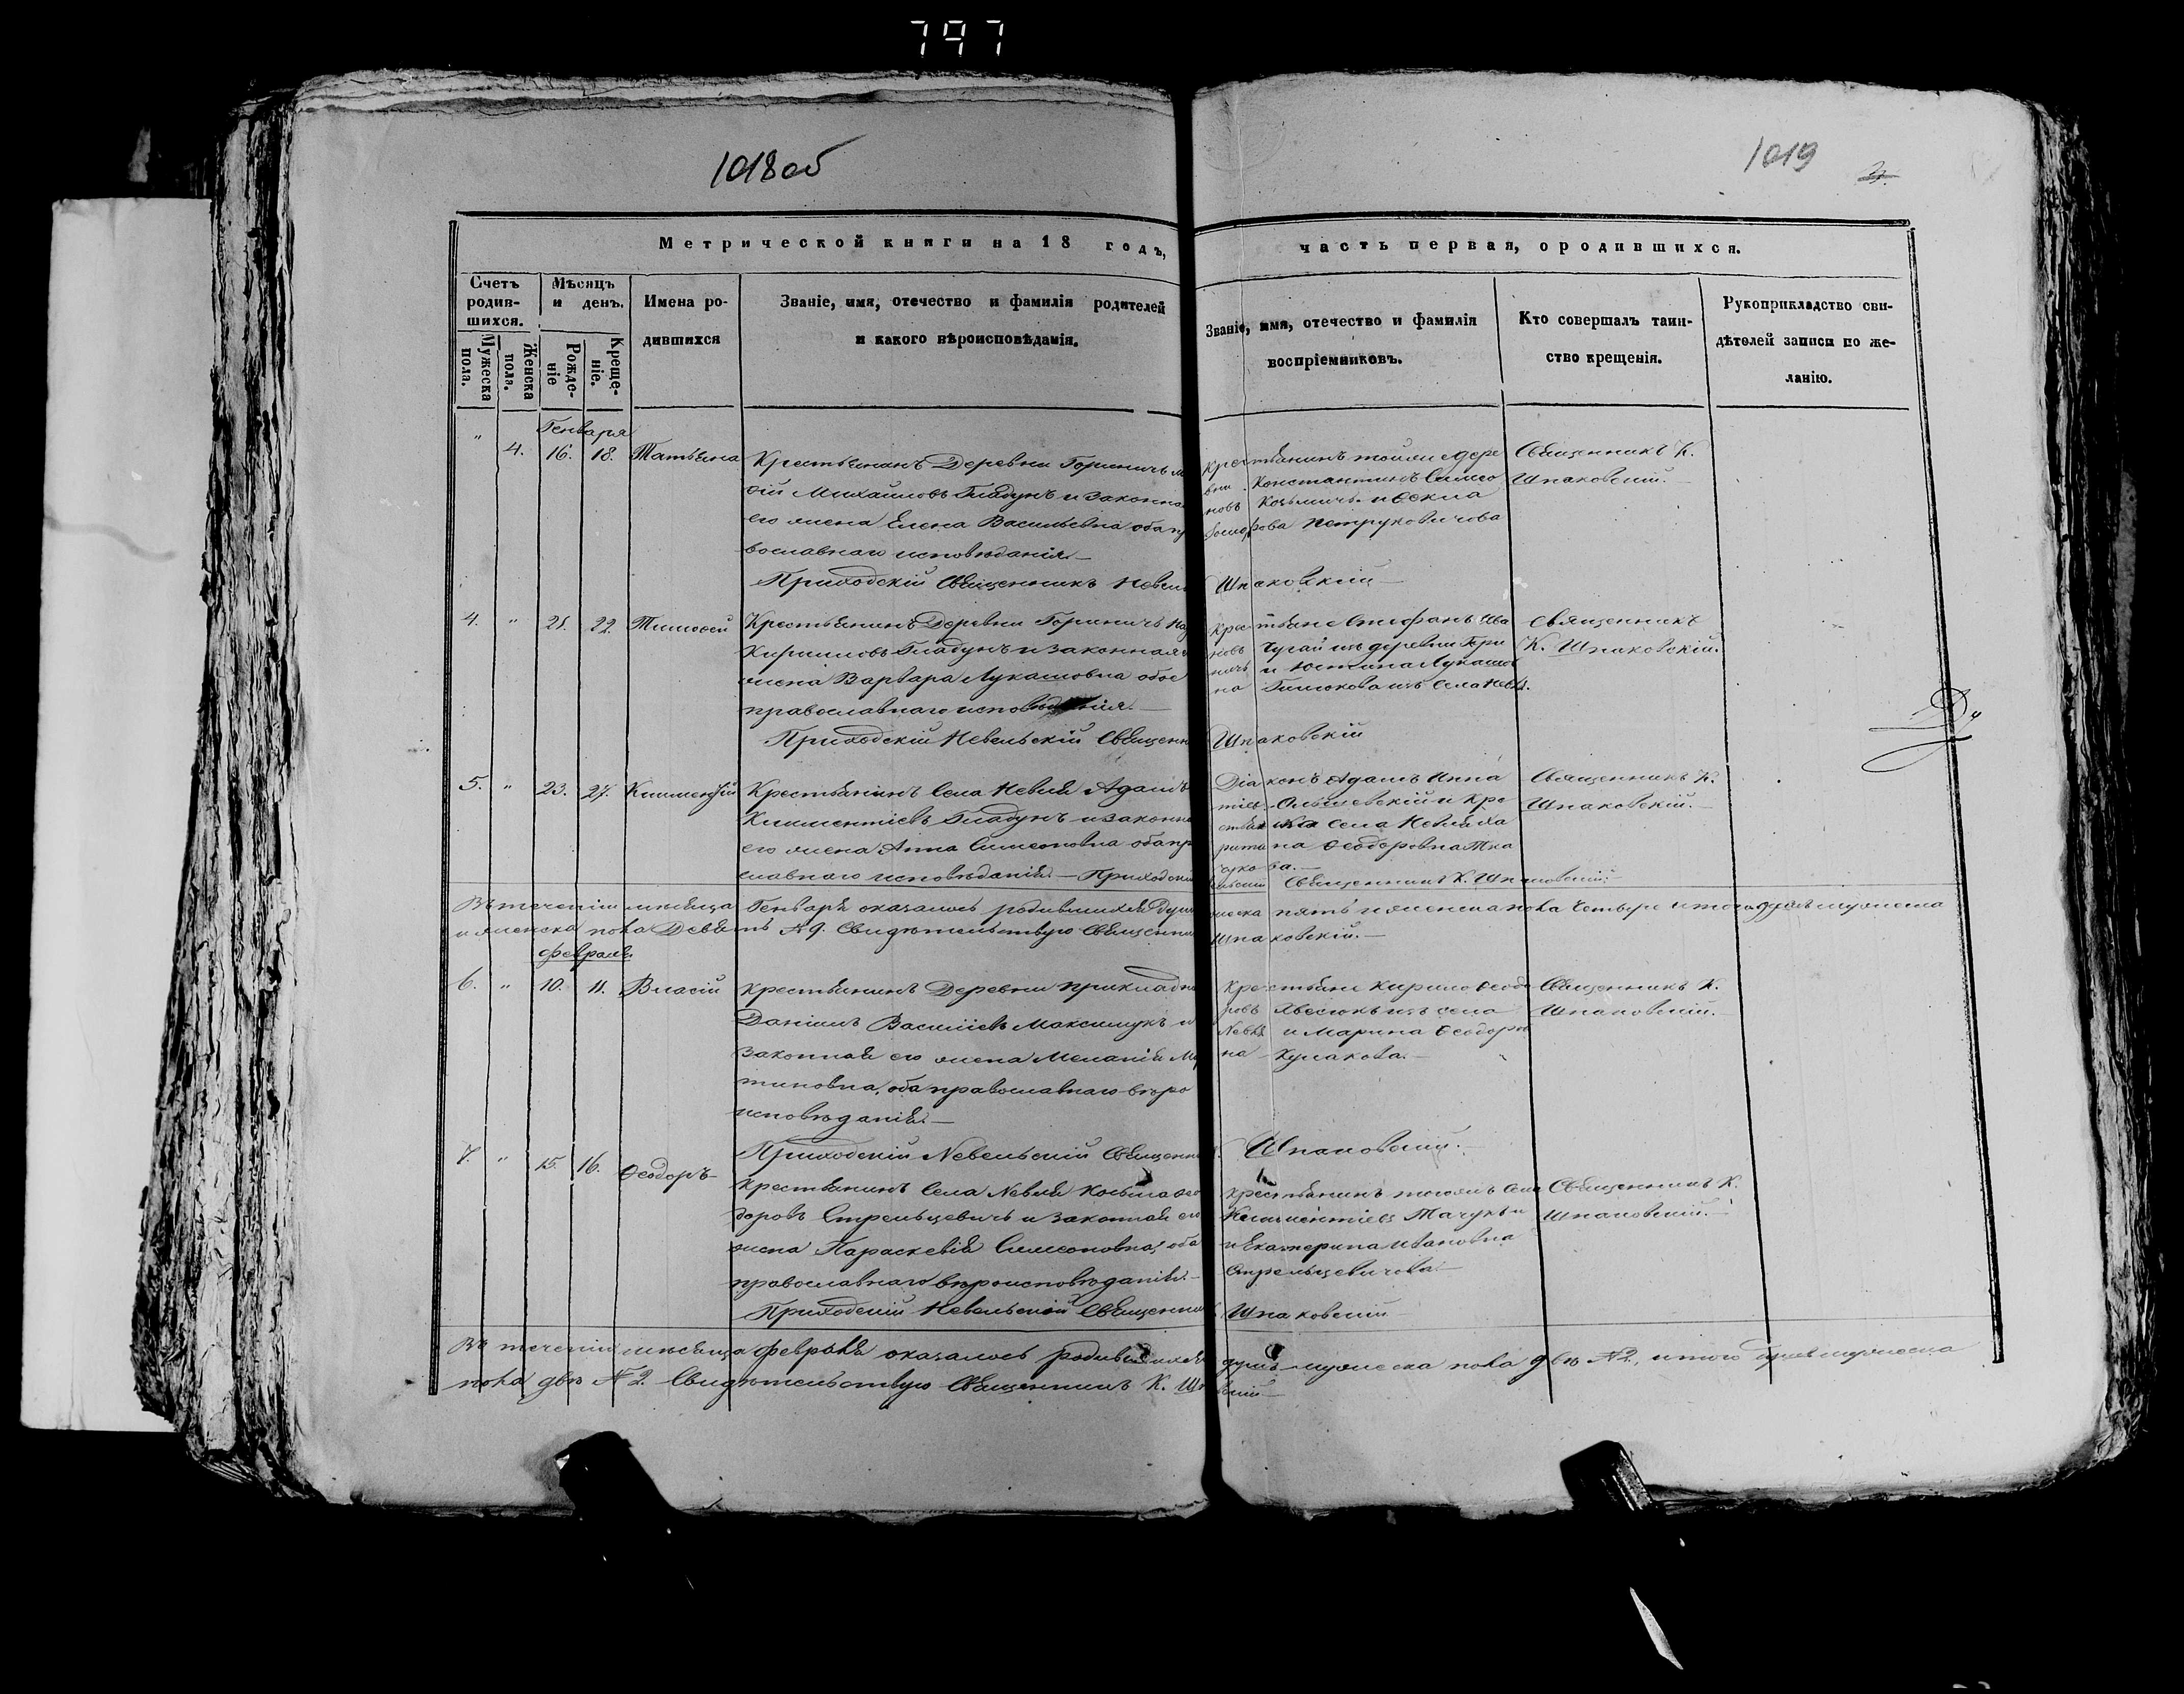 797
1018об
1019
Метрической книги на 18 годъ,
часть первая, ородившихся.
Счетъ родив-шихся.
Мѣсяцъ и день.
Имена ро-дившихся
Званіе, имя, отечество и фамилія родителей
и какого вѣроисповѣданія.
Званіе, имя, отечество и фамилія
воспріемниковъ.
Кто совершалъ таин-
ство крещенія.
Рукоприкладство сви-
дѣтелей записи по же-
ланію.
Мужеска пола.
Женска пола.
Рожде-ніе
Креще-ніе.
Генваря
" 4. 16. 18. Татьяна
Крестьянинъ Деревни Горничъ
Михайловъ Гладунъ и законная
его жена Елена Васильевна оба
вославнаго исповѣданія.—
Приходскій Священникъ
Крестьянинъ тойже дере
вни Константинъ Симео
новъ Козьмичъ и Ѳекла
Петруковичова
Шпаковскій—
Священникъ К.
Шпаковскій.
4. " 21. 22. Тимоѳей
Крестьянинъ Деревни Горничъ
Кириловъ Гладунъ и законная
жена Варвара Лукашовна обое
православнаго исповѣданія.—
Приходскій Невельскій Священ
Крестьяне Стефанъ Ива
новъ Чугай изъ деревни Гор
ничъ и Юстина Лукашов
на изъ села
Шпаковскій
Священникъ
К. Шпаковскій.
5. " 23. 27. Климентій
Крестьянинъ Села Невля Адамъ
Климентіевъ Гладунъ и законна
его жена Анна Симеоновна оба пр
славнаго исповѣданія.— Приходск
Діаконъ Адамъ Игна
тіевъ Ольшевскій и Кре
стьянка села Невля Ха
ритина Ѳеодоровна Тка
чукова.—
Священникъ К. Шпаковскій.
Священникъ К.
Шпаковскій.—
Въ теченіи мѣсяца Генваря оказалось родившихся Душъ
жеска пять и женска пола четыре итого душъ мужеска
и женска пола Девять № 9. Свидѣтельствую Священник
Шпаковскій.—
Февраль
6. " 10. 11. Власій
Крестьянинъ Деревни Прикладн
Даніилъ Василіевъ Максимукъ и
законная его жена Меланія Ма
тиновна, оба православнаго вѣро
исповѣданія.—
Приходскій Невельскій Священни
Крестьяне Кирило Ѳеодо
ровъ изъ села
и Марина Ѳеодоров
на Кулакова.—
Шпаковскій.
Священникъ К.
Шпаковскій.
7. " 15. 16. Ѳеодоръ
Крестьянинъ Села Невля Косьма Ѳео
доровъ Стрельцевичъ и законная его
жена Параскевія Симеоновна, оба
православнаго вѣроисповѣданія.—
Приходскій Невельскій Священник
Крестьянинъ тогожъ села
Климентіевъ
и Екатерина Ивановна
Стрельцевичова—
Шпаковскій
Священникъ К.
Шпаковскій.—
Въ теченіи мѣсяца февраля оказалось родившихся
душъ мужеска пола двѣ № 2., итого душъ мужеска
пола двѣ № 2. Свидѣтельствую Священникъ К. Шп